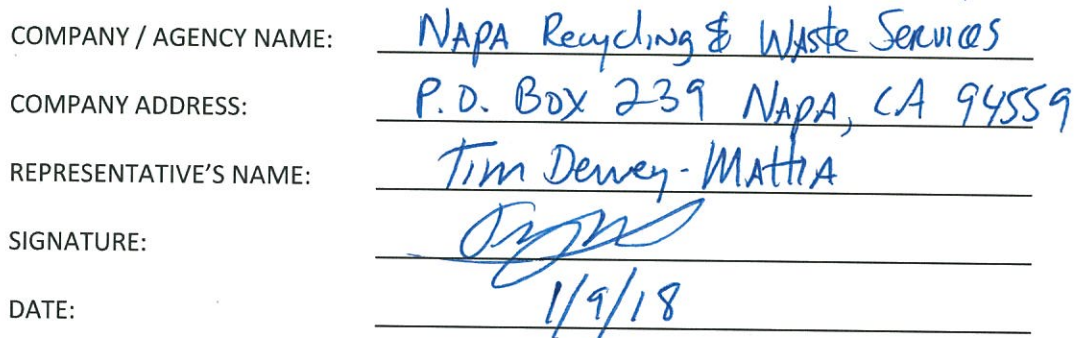 COMPANY / AGENCY NAME: Napa Recycling & Waste Services
COMPANY ADDRESS: P.O. Box 239 Napa, CA 94559
REPRESENTATIVE'S NAME: Tim Dewey-Mattia
SIGNATURE:
DATE: 1/9/18